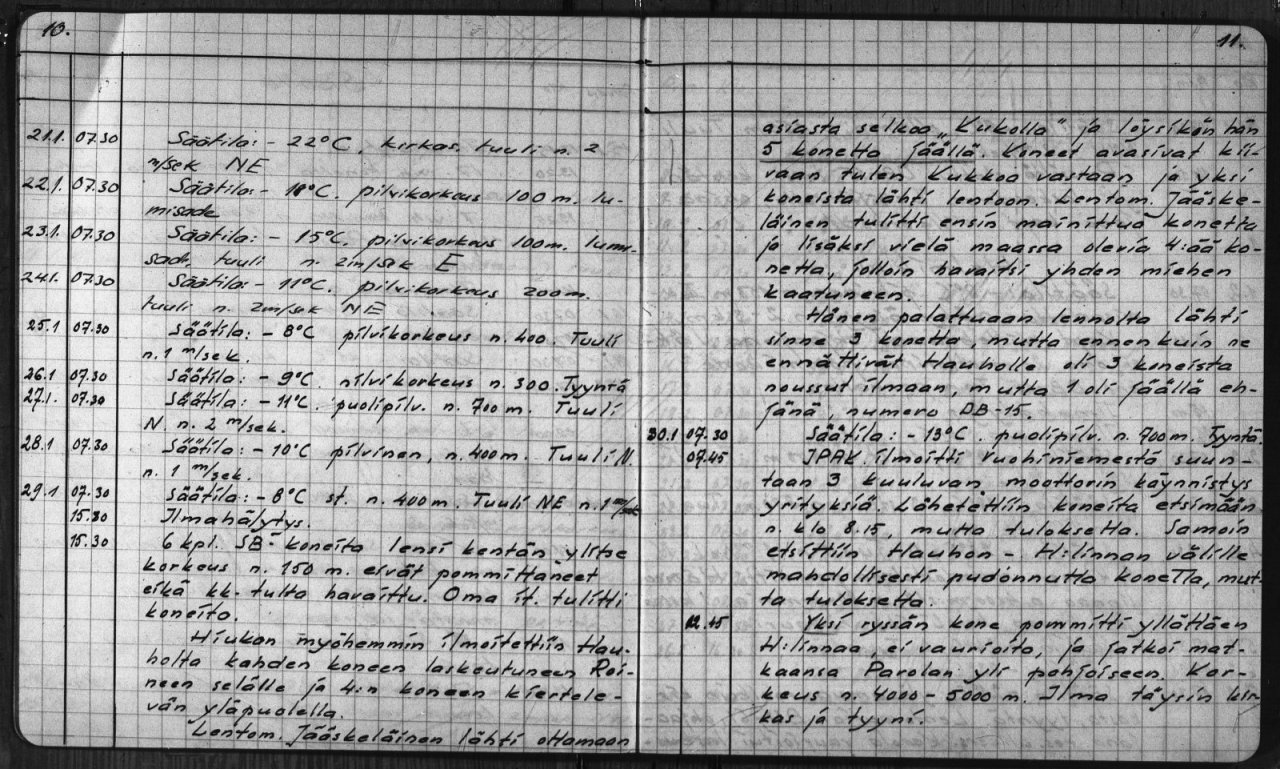 10.
21.1. 07.30 Säätila: - 22°C, kirkas, tuuli n. 2
m/sek NE
22.1. 07.30 Säätila: - 18°C. pilvikorkeus 100 m. lu-
misade
23.1. 07.30 Säätila: - 15°C. pilvikorkeus 100m. lumi-
sade, tuuli n. 2m/sek E
24.1. 07.30 Säätila: - 11°C. pilvikorkeus 200m.
tuuli n. 2m/sek NE
25.1 07.30 Säätila: - 8°C pilvikorkeus n. 400. Tuuli
n. 1 m/sek.
26.1 07.30 Säätila: - 9°C. pilvikorkeus n. 300. Tyyntä
27.1. 07.30 Säätila: - 11°C. puolipilv. n. 700 m. Tuuli
N n. 2 m/sek.
28.1 07.30 Säätila: - 10°C pilvinen, n. 400m. Tuuli N.
n. 1 m/sek.
29.1 07.30 Säätila: - 8°C st. n. 400m. Tuuli NE n. 1 m/sek
15.30 Ilmahälytys.
15.30 6 kpl. SB-koneita lensi kentän ylitse
korkeus n. 150 m. eivät pommittaneet
eikä kk-tulta havaittu. Oma it. tulitti
koneita.
Hiukan myöhemmin ilmoitettiin Hau-
holta kahden koneen laskeutuneen Roi-
neen selälle ja 4:n koneen kiertele-
vän yläpuolella.
Lentom. Jääskeläinen lähti ottamaan
11.
asiasta selkoa "Kukolla" ja löysikin hän
5 konetta jäällä. Koneet avasivat kii-
vaan tulen Kukkoa vastaan ja yksi
koneista lähti lentoon. Lentom. Jääske-
läinen tulitti ensin mainittua konetta
ja lisäksi vielä maassa olevia 4:ää ko-
netta, jolloin havaitsi yhden miehen
kaatuneen.
Hänen palattuaan lennolta lähti
sinne 3 konetta, mutta ennenkuin ne
ennättivät Hauholle oli 3 koneista
noussut ilmaan, mutta 1 oli jäällä eh-
jänä, numero DB-15.
30.1 07.30 Säätila: - 13°C. puolipilv. n. 700m. Tyyntä.
07.45 IPAK. ilmoitti Vuohiniemestä suun-
taan 3 kuuluvan moottorin käynnistys
yrityksiä. Lähetettiin koneita etsimään
n. klo 8.15, mutta tuloksetta. Samoin
etsittiin Hauhon - H:linnan välille
mahdollisesti pudonnutta konetta, mut-
ta tuloksetta.
12.45 Yksi ryssän kone pommitti yllättäen
H:linnaa, ei vaurioita, ja jatkoi mat-
kaansa Parolan yli pohjoiseen. Kor-
keus n. 4000 - 5000 m. Ilma täysin kir-
kas ja tyyni.